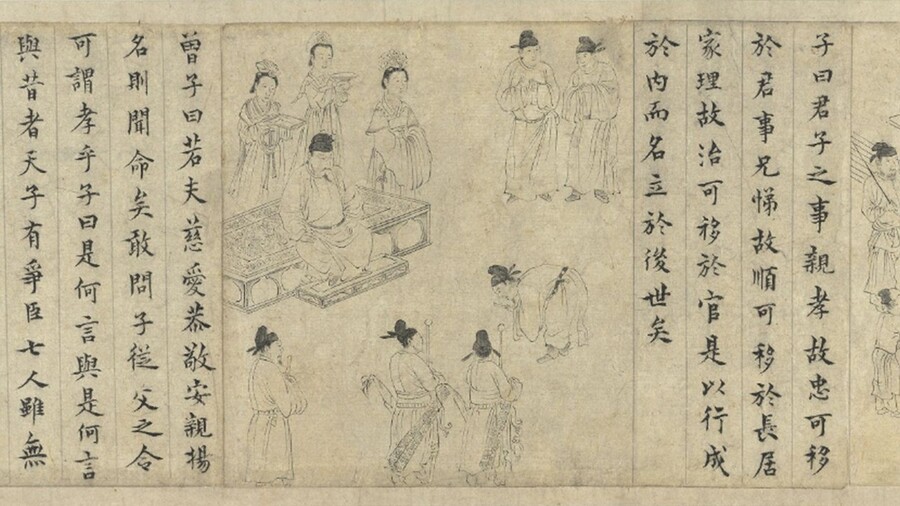 子曰君子之事親孝故忠可移
於君事兄悌故順可移於長居
家理故治可移於官是以行成
於内而名立於後世矣
曾子曰若夫慈愛恭敬安親揚
名則聞命矣敢問子從父之令
可謂孝乎子曰是何言與是何言
與昔者天子有爭臣七人雖無